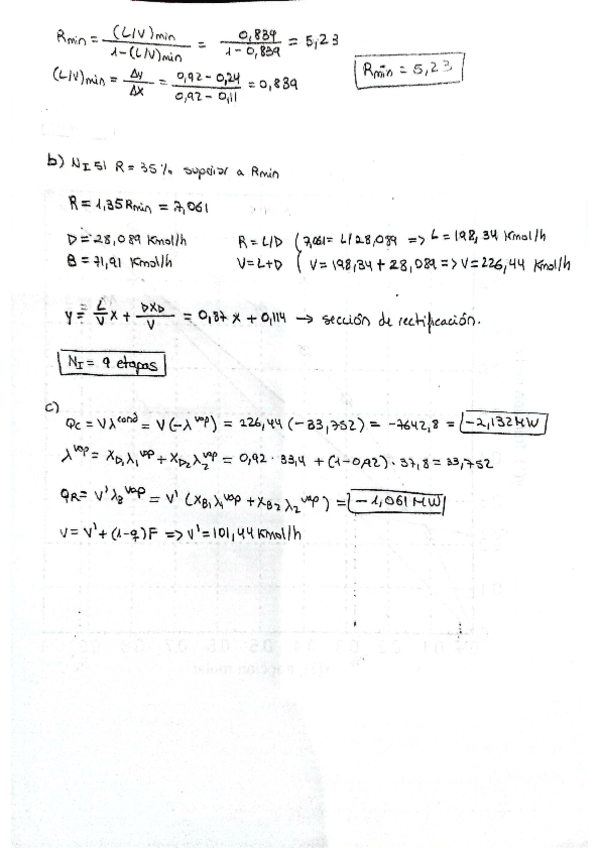 Rmin = (L/V)min / 1-(L/V)min = 0,839 / 1-0,839 = 5,23
(L/V)min = Δy / Δx = 0,92-0,24 / 0,92-0,11 = 0,839
Rmin = 5,23
b) NI si R = 35% superior a Rmin
R = 1,35Rmin = 7,061
D = 28,089 Kmol/h R = L/D 7,061 = L/28,089 => L = 198,34 Kmol/h
B = 71,91 Kmol/h V = L+D V = 198,34 + 28,089 => V = 226,44 Kmol/h
y = L/V x + DXD/V = 0,87 x + 0,114 → sección de rectificación.
NI = 9 etapas
c)
QC = Vλcond = V(-λvap) = 226,44 (-33,752) = -7642,8 = -2,132MW
λvap = XD1λ1vap + XD2λ2vap = 0,92 · 33,4 + (1-0,92) · 37,8 = 33,752
QR = V'λBvap = V' (XB1λ1vap + XB2λ2vap) = -1,061 MW
V = V' + (1-q)F => V' = 101,44 Kmol/h